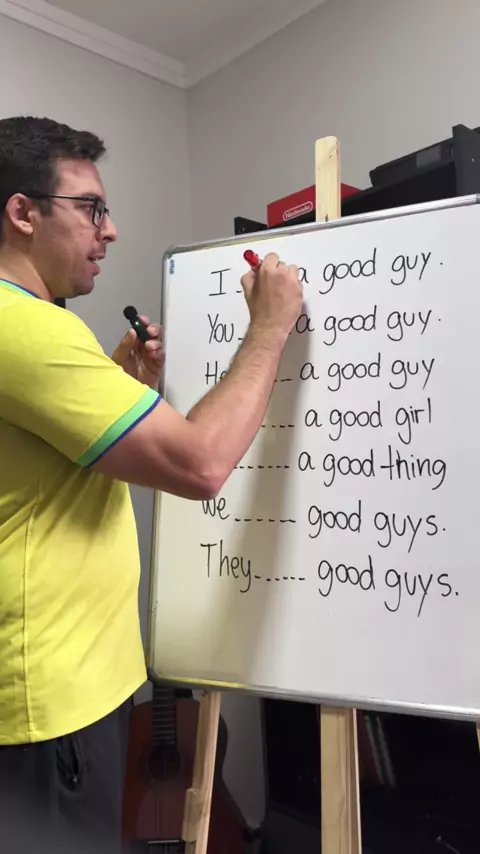 Nintendo
I _ a good guy.
You_ a good guy.
He ___ a good guy
---- a good girl
------ a good thing
We ----- good guys.
They----- good guys.